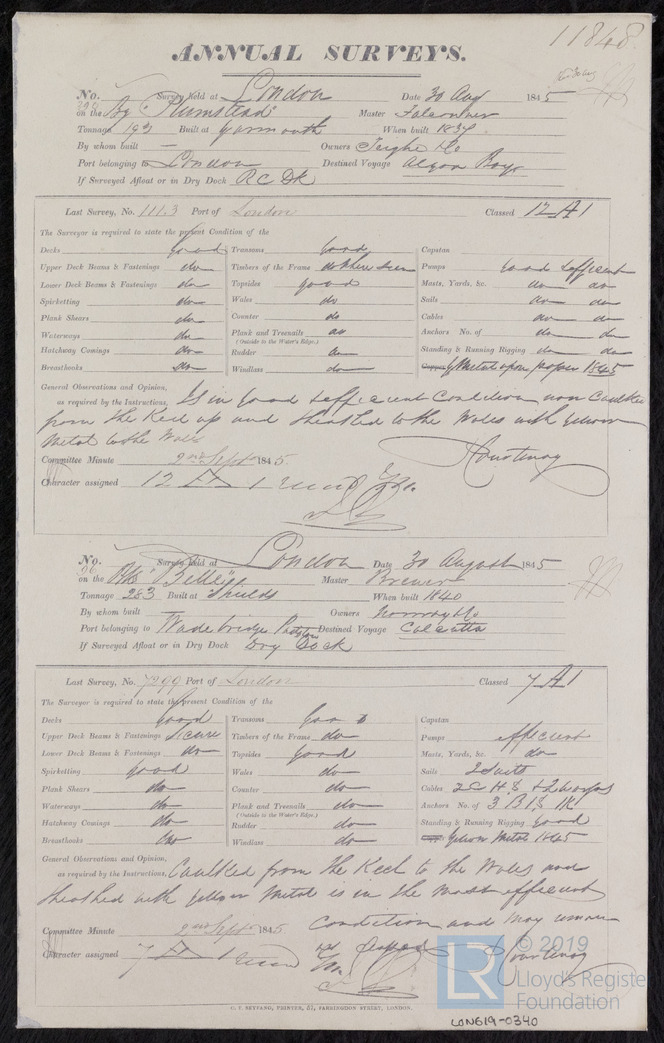 11848
ANNUAL SURVEYS.
No. Survey held at London Date 30 Aug 1845
on the Bg "Plumstead" Master Falconer
Tonnage 193 Built at Yarmouth When built 1839
By whom built — Owners Co
Port belonging to London Destined Voyage Algoa Bay
If Surveyed Afloat or in Dry Dock R C Dk
Last Survey, No. 1113 Port of London Classed 12 A 1
The Surveyor is required to state the present Condition of the
Decks good Transoms good Capstan
Upper Deck Beams & Fastenings do Timbers of the Frame do where seen Pumps Good & efficient
Lower Deck Beams & Fastenings do Topsides good Masts, Yards, &c. do do
Spirketting do Wales do Sails do do
Plank Shears do Counter do Cables do do
Waterways do Plank and Treenails do Anchors No. of do do
(Outside to the Water's Edge.)
Hatchway Comings do Rudder do Standing & Running Rigging do do
Breasthooks do Windlass do Y Metal upon paper 1845
General Observations and Opinion,
as required by the Instructions, Is in good & efficient Condition now Caulked
from the Keel up and sheathed to the Wales with yellow
Metal to the Wales
Courtenay
Committee Minute 2nd Septr 1845.
Character assigned 12 A 1
No. Survey held at London Date 30 August 1845
on the "Belle" Master Brewer
Tonnage 283 Built at Shields When built 1840
By whom built Owners
Port belonging to Wadebridge Padstow Destined Voyage Calcutta
If Surveyed Afloat or in Dry Dock Dry Dock
Last Survey, No. 7299 Port of London Classed 7 A 1
The Surveyor is required to state the present Condition of the
Decks good Transoms Good Capstan
Upper Deck Beams & Fastenings Secure Timbers of the Frame do Pumps efficient
Lower Deck Beams & Fastenings do Topsides good Masts, Yards, &c. do
Spirketting good Wales do Sails 2 Suits
Plank Shears do Counter do Cables 2 C H &
Waterways do Plank and Treenails do Anchors No. of 3 B 1 S 1 K
(Outside to the Water's Edge.)
Hatchway Comings do Rudder do Standing & Running Rigging good
Breasthooks do Windlass do Yellow Metal 1845
General Observations and Opinion,
as required by the Instructions, Caulked from the Keel to the Wales and
sheathed with yellow Metal is in the most efficient
Condition and May
Committee Minute 2nd Septr 1845
Character assigned 7 A 1
Courtenay
C. F. SEYFANG, PRINTER, 57, FARRINGDON STREET, LONDON.
LR © 2019
Lloyd's Register
Foundation
LON619-0340